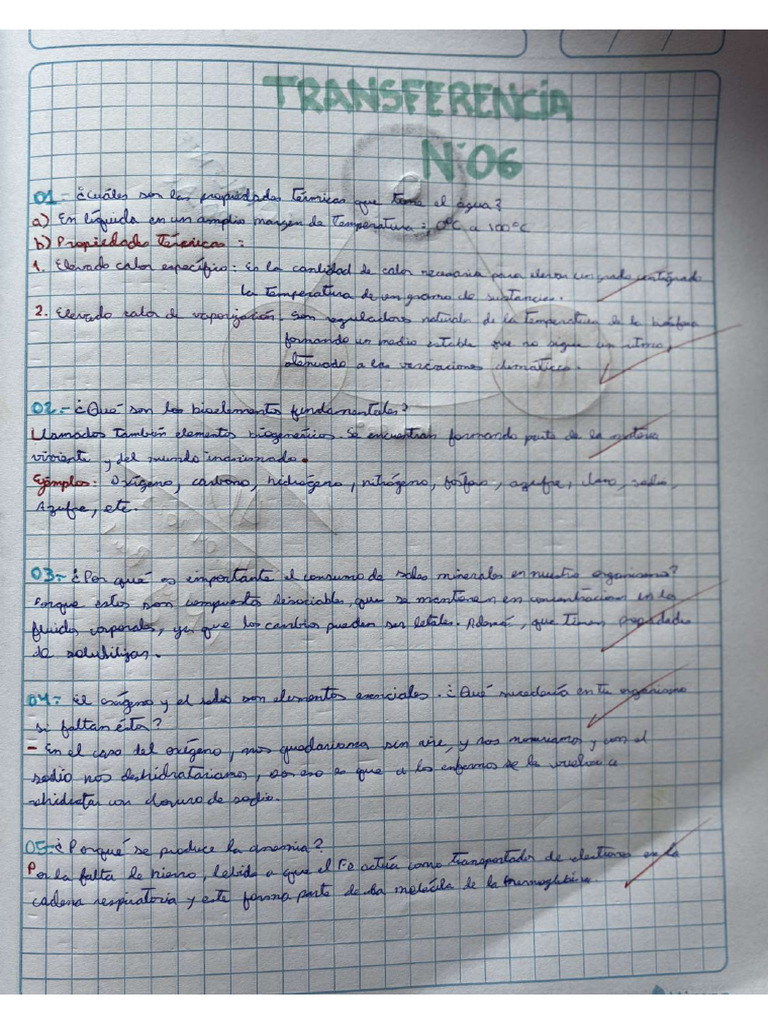 TRANSFERENCIA
N°06
01.- ¿Cuáles son las propiedades térmicas que toma el agua?
a) En líquida en un amplio margen de Temperatura: 0°C a 100°C
b) Propiedades Térmicas :
1. Elevado calor específico: Es la cantidad de calor necesaria para elevar un grado centígrado
la temperatura de un gramo de sustancia.
2. Elevado calor de vaporización. Son reguladores naturales de la temperatura de la biósfera
formando un medio estable que no sigue un ritmo,
atenuado a las variaciones climáticas.
02.- ¿Qué son los bioelementos fundamentales?
Llamados también elementos biogenésicos. Se encuentran formando parte de la materia
viviente y del mundo inanimado.
Ejemplos: Oxígeno, carbono, hidrógeno, nitrógeno, fósforo, azufre, cloro, sodio,
Azufre, etc.
03.- ¿Por qué es importante el consumo de sales minerales en nuestro organismo?
Porque estos son compuestos disociables, que se mantienen en concentración en los
fluidos corporales, ya que los cambios pueden ser letales. Además, que tienen propiedades
de solubilizar.
04.- El oxígeno y el sodio son elementos esenciales. ¿Qué sucedería en tu organismo
si faltan éstos?
- En el caso del oxígeno, nos quedaríamos sin aire, y nos moriríamos y con el
sodio nos deshidrataríamos, por eso es que a los enfermos se le vuelve a
rehidratar con cloruro de sodio.
05.- ¿Porqué se produce la anemia?
Por la falta de hierro, debido a que el Fe actúa como transportador de electrones en la
cadena respiratoria y este forma parte de la molécula de la hemoglobina.